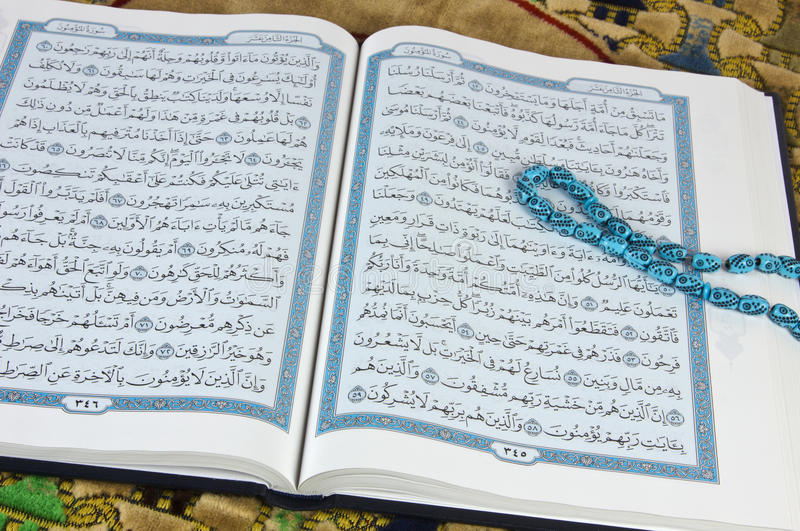 الجزء الثامن عشر سورة المؤمنون
مَا تَسْبِقُ مِنْ أُمَّةٍ أَجَلَهَا وَمَا يَسْتَـْٔخِرُونَ ٤٣ ثُمَّ أَرْسَلْنَا رُسُلَنَا
تَتْرَا كُلَّ مَا جَآءَ أُمَّةً رَّسُولُهَا كَذَّبُوهُ فَأَتْبَعْنَا بَعْضَهُم بَعْضًا
وَجَعَلْنَٰهُمْ أَحَادِيثَ فَبُعْدًا لِّقَوْمٍ لَّا يُؤْمِنُونَ ٤٤ ثُمَّ أَرْسَلْنَا مُوسَىٰ
وَأَخَاهُ هَٰرُونَ بِـَٔايَٰتِنَا وَسُلْطَٰنٍ مُّبِينٍ ٤٥ إِلَىٰ فِرْعَوْنَ وَمَلَإِي۟هِ
فَٱسْتَكْبَرُوا۟ وَكَانُوا۟ قَوْمًا عَالِينَ ٤٦ فَقَالُوٓا۟ أَنُؤْمِنُ لِبَشَرَيْنِ مِثْلِنَا
وَقَوْمُهُمَا لَنَا عَٰبِدُونَ ٤٧ فَكَذَّبُوهُمَا فَكَانُوا۟ مِنَ ٱلْمُهْلَكِينَ
٤٨ وَلَقَدْ ءَاتَيْنَا مُوسَى ٱلْكِتَٰبَ لَعَلَّهُمْ يَهْتَدُونَ ٤٩ وَجَعَلْنَا
ٱبْنَ مَرْيَمَ وَأُمَّهُۥٓ ءَايَةً وَءَاوَيْنَٰهُمَآ إِلَىٰ رَبْوَةٍ ذَاتِ قَرَارٍ وَمَعِينٍ
٥٠ يَٰٓأَيُّهَا ٱلرُّسُلُ كُلُوا۟ مِنَ ٱلطَّيِّبَٰتِ وَٱعْمَلُوا۟ صَٰلِحًا إِنِّى بِمَا
تَعْمَلُونَ عَلِيمٌ ٥١ وَإِنَّ هَٰذِهِۦٓ أُمَّتُكُمْ أُمَّةً وَٰحِدَةً وَأَنَا۠ رَبُّكُمْ
فَٱتَّقُونِ ٥٢ فَتَقَطَّعُوٓا۟ أَمْرَهُم بَيْنَهُمْ زُبُرًا كُلُّ حِزْبٍۭ بِمَا لَدَيْهِمْ
فَرِحُونَ ٥٣ فَذَرْهُمْ فِى غَمْرَتِهِمْ حَتَّىٰ حِينٍ ٥٤ أَيَحْسَبُونَ أَنَّمَا نُمِدُّهُم
بِهِۦ مِن مَّالٍ وَبَنِينَ ٥٥ نُسَارِعُ لَهُمْ فِى ٱلْخَيْرَٰتِ بَل لَّا يَشْعُرُونَ
٥٦ إِنَّ ٱلَّذِينَ هُم مِّنْ خَشْيَةِ رَبِّهِم مُّشْفِقُونَ ٥٧ وَٱلَّذِينَ هُم
بِـَٔايَٰتِ رَبِّهِمْ يُؤْمِنُونَ ٥٨ وَٱلَّذِينَ هُم بِرَبِّهِمْ لَا يُشْرِكُونَ ٥٩
٣٤٥
الجزء الثامن عشر سورة المؤمنون
وَٱلَّذِينَ يُؤْتُونَ مَآ ءَاتَوا۟ وَّقُلُوبُهُمْ وَجِلَةٌ أَنَّهُمْ إِلَىٰ رَبِّهِمْ رَٰجِعُونَ ٦٠
أُو۟لَٰٓئِكَ يُسَٰرِعُونَ فِى ٱلْخَيْرَٰتِ وَهُمْ لَهَا سَٰبِقُونَ ٦١ وَلَا نُكَلِّفُ
نَفْسًا إِلَّا وُسْعَهَا وَلَدَيْنَا كِتَٰبٌ يَنطِقُ بِٱلْحَقِّ وَهُمْ لَا يُظْلَمُونَ
٦٢ بَلْ قُلُوبُهُمْ فِى غَمْرَةٍ مِّنْ هَٰذَا وَلَهُمْ أَعْمَٰلٌ مِّن دُونِ ذَٰلِكَ
هُمْ لَهَا عَٰمِلُونَ ٦٣ حَتَّىٰٓ إِذَآ أَخَذْنَا مُتْرَفِيهِم بِٱلْعَذَابِ إِذَا هُمْ
يَجْـَٔرُونَ ٦٤ لَا تَجْـَٔرُوا۟ ٱلْيَوْمَ إِنَّكُم مِّنَّا لَا تُنصَرُونَ ٦٥ قَدْ كَانَتْ
ءَايَٰتِى تُتْلَىٰ عَلَيْكُمْ فَكُنتُمْ عَلَىٰٓ أَعْقَٰبِكُمْ تَنكِصُونَ ٦٦
مُسْتَكْبِرِينَ بِهِۦ سَٰمِرًا تَهْجُرُونَ ٦٧ أَفَلَمْ يَدَّبَّرُوا۟ ٱلْقَوْلَ أَمْ
جَآءَهُم مَّا لَمْ يَأْتِ ءَابَآءَهُمُ ٱلْأَوَّلِينَ ٦٨ أَمْ لَمْ يَعْرِفُوا۟ رَسُولَهُمْ
فَهُمْ لَهُۥ مُنكِرُونَ ٦٩ أَمْ يَقُولُونَ بِهِۦ جِنَّةٌۢ بَلْ جَآءَهُم
بِٱلْحَقِّ وَأَكْثَرُهُمْ لِلْحَقِّ كَٰرِهُونَ ٧٠ وَلَوِ ٱتَّبَعَ ٱلْحَقُّ أَهْوَآءَهُمْ
لَفَسَدَتِ ٱلسَّمَٰوَٰتُ وَٱلْأَرْضُ وَمَن فِيهِنَّ بَلْ أَتَيْنَٰهُم بِذِكْرِهِمْ
فَهُمْ عَن ذِكْرِهِم مُّعْرِضُونَ ٧١ أَمْ تَسْـَٔلُهُمْ خَرْجًا فَخَرَاجُ
وَهُوَ خَيْرُ ٱلرَّٰزِقِينَ ٧٢ وَإِنَّكَ لَتَدْعُوهُمْ إِلَىٰ صِرَٰطٍ
وَإِنَّ ٱلَّذِينَ لَا يُؤْمِنُونَ بِٱلْءَاخِرَةِ عَنِ ٱلصِّرَٰطِ
٣٤٦